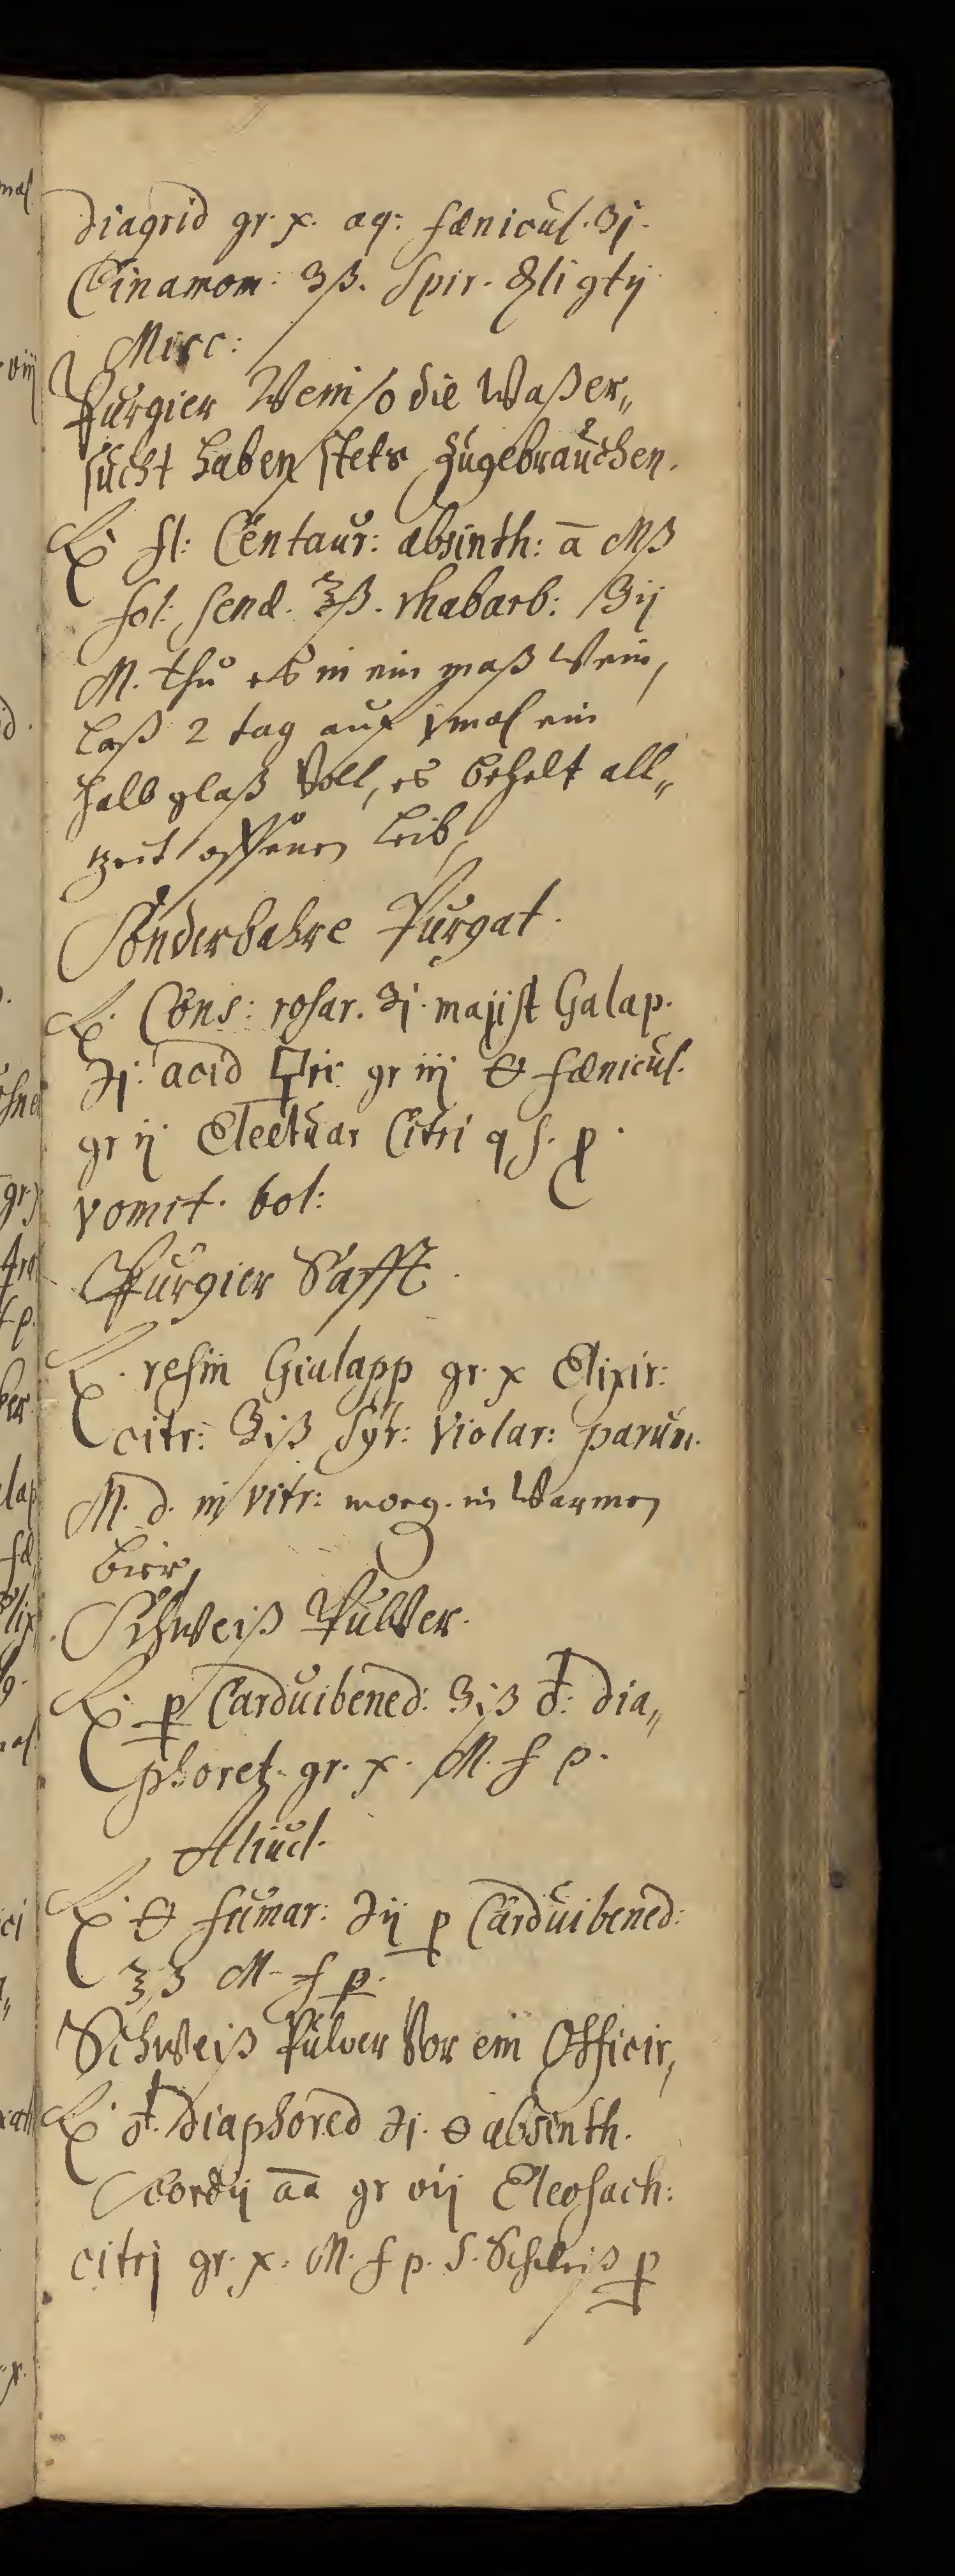 diagrid gr. x. aq: fænicul. ʒj.
Cinamom: ʒß. Spir. ⊕li gtij
Misc:
Purgier Wein so die Waßer„
sucht haben stets zugebrauchen.
℞ fl: Centaur: absinth: ā Mß
fol: senæ. ℥ß. rhabarb: ʒij
M. thu es in ein maß Wein,
laß 2 tag auf jmal ein
halb glaß Voll, es behelt all„
tzeit offenen Leib,
Sonderbahre Purgat.
℞. Cons: rosar. ʒj. majist Galap.
℈j. acid 🜿ri gr iij 🜔 fænicul.
gr ij Electuar Citri q s. p.
vomit. bol:
Purgier Safft.
℞. resin Gialapp gr. x Elixir:
citr: ʒiß Syr: Violar: parum.
M. d. in vitr: morg. in Warmen
bier,
Schweiß Pulver.
℞. p Carduibened: ʒiß ♁: dia„
phoret. gr. x. M. f p.
Aliud.
℞. 🜔 fumar: ℈ij p Carduibened:
ʒß M. f p.
Schweiß Pulver Vor ein Officir,
℞. ♁. diaphored ℈j. 🜔 absinth.
Cordij āā gr vij Eleosach:
citrj gr. x. M. f p. S. Schweiß p